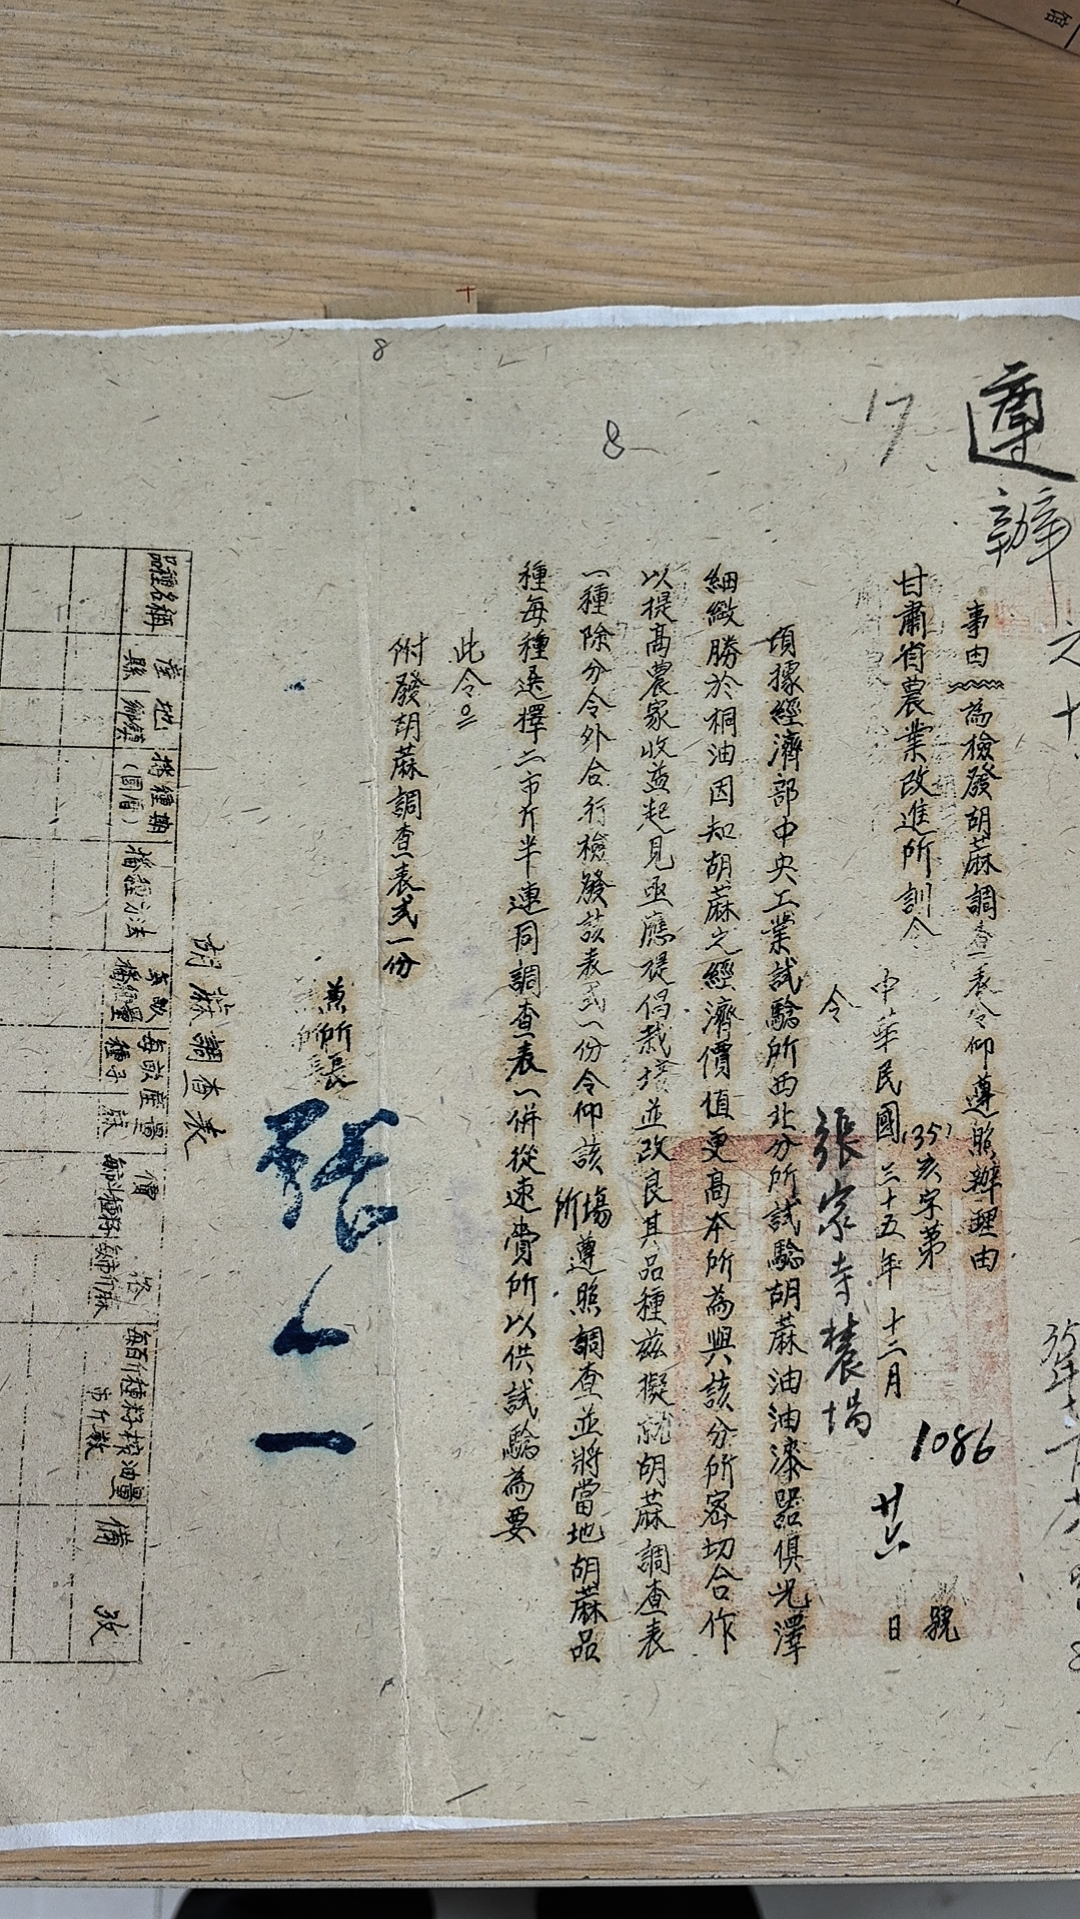 遵辦
17
8
8
事由 為檢發胡蔴調查表令仰遵照辦理由
甘肅省農業改進所訓令
(35)亥字第 1086 號
中華民國三十五年十二月 廿六 日
令 張家寺農場
頃據經濟部中央工業試驗所西北分所試驗胡蔴油油漆器俱光澤
細緻勝於桐油因知胡蔴之經濟價值更高本所為與該分所密切合作
以提高農家收益起見亟應提倡栽培並改良其品種茲擬就胡蔴調查表
一種除分令外合行檢發該表式一份令仰該場所遵照調查並將當地胡蔴品
種每種選擇二市斤半連同調查表一併從速賫所以供試驗為要
此令
附發胡蔴調查表式一份
兼所長 張
胡蔴調查表
品種名稱
產地
縣
鄉鎮
播種期
(國曆)
播種方法
每畝播種量
每畝產量
種子
蔴
價
每百斤種籽榨油量
市斤數
備攷